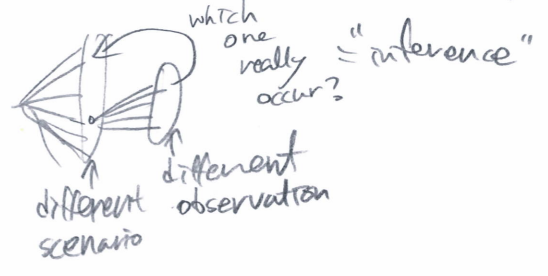 which
one
really
occur?
= "inference"
different
scenario
different
observation